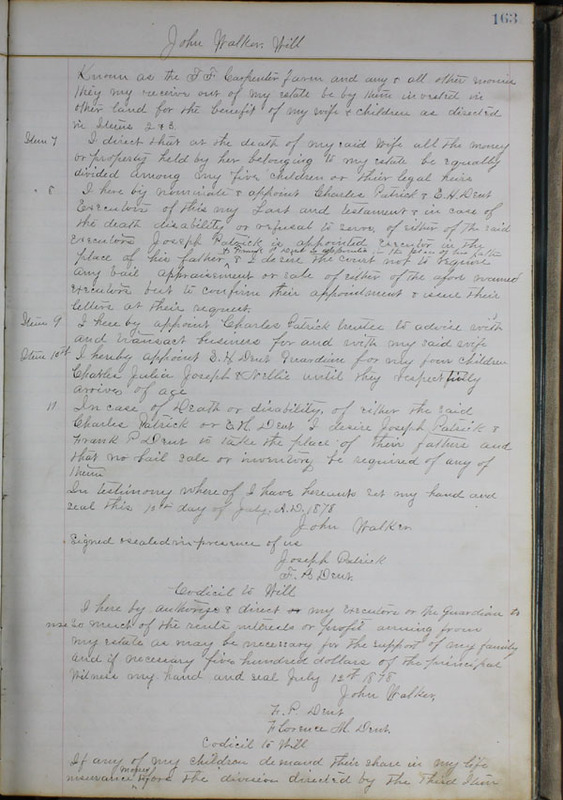 163
John Walker. Will
Known as the F. F. Carpenter farm and any & all other monies
they my receive out of my estate be by them invested in
other land for the benefit of my wife & children as directed
in Items 2 & 3.
Item 7 I direct that at the death of my said Wife all the money
or property held by her belonging to my estate be equally
divided among my five children or their legal heirs
" 8 I here by nominate & appoint Charles Patrick & E. H. Dent
Executors of this my Last and testament & in case of
the death disability or refusal to serve, of either of the said
Executors Joseph Patrick is appointed executor in the
& Frank P Dent is appointed in the place of his father
place of his father, & I desire the court not to require
any bail appraisment or sale of either of the afore named
executors but to confirm their appointment & issue their
letters at their request.
Item 9 I here by appoint Charles Patrick trustee to advise with
and transact business for and with my said wife
Item 10th I hereby appoint E. H. Dent Guardian for my four children
Charles Julia Joseph & Nellie until they respectfully
arrives of age
11 In case of Death or disability of either the said
Charles Patrick or E. H. Dent I desire Joseph Patrick &
Frank P Dent to take the place of their fathers and
that no bail sale or inventory be required of any of
them
In testimony where of I have hereunto set my hand and
seal this day of July. A.D. 1878
John Walker.
Signed & sealed in presence of us
Joseph Patrick
F. P. Dent
Codicil to Will
I here by authorize & direct or my executors or the Guardian to
use so much of the rents interests or profit arising from
my estate as may be necessary for the support of my family
and if necessary five hundred dollars of the principal
Witness my hand and seal July 12th 1878
John Walker,
F. P. Dent
Florence H. Dent
Codicil to Will
If any of my children demand their share in my life
insurance money before the division directed by the Third Item